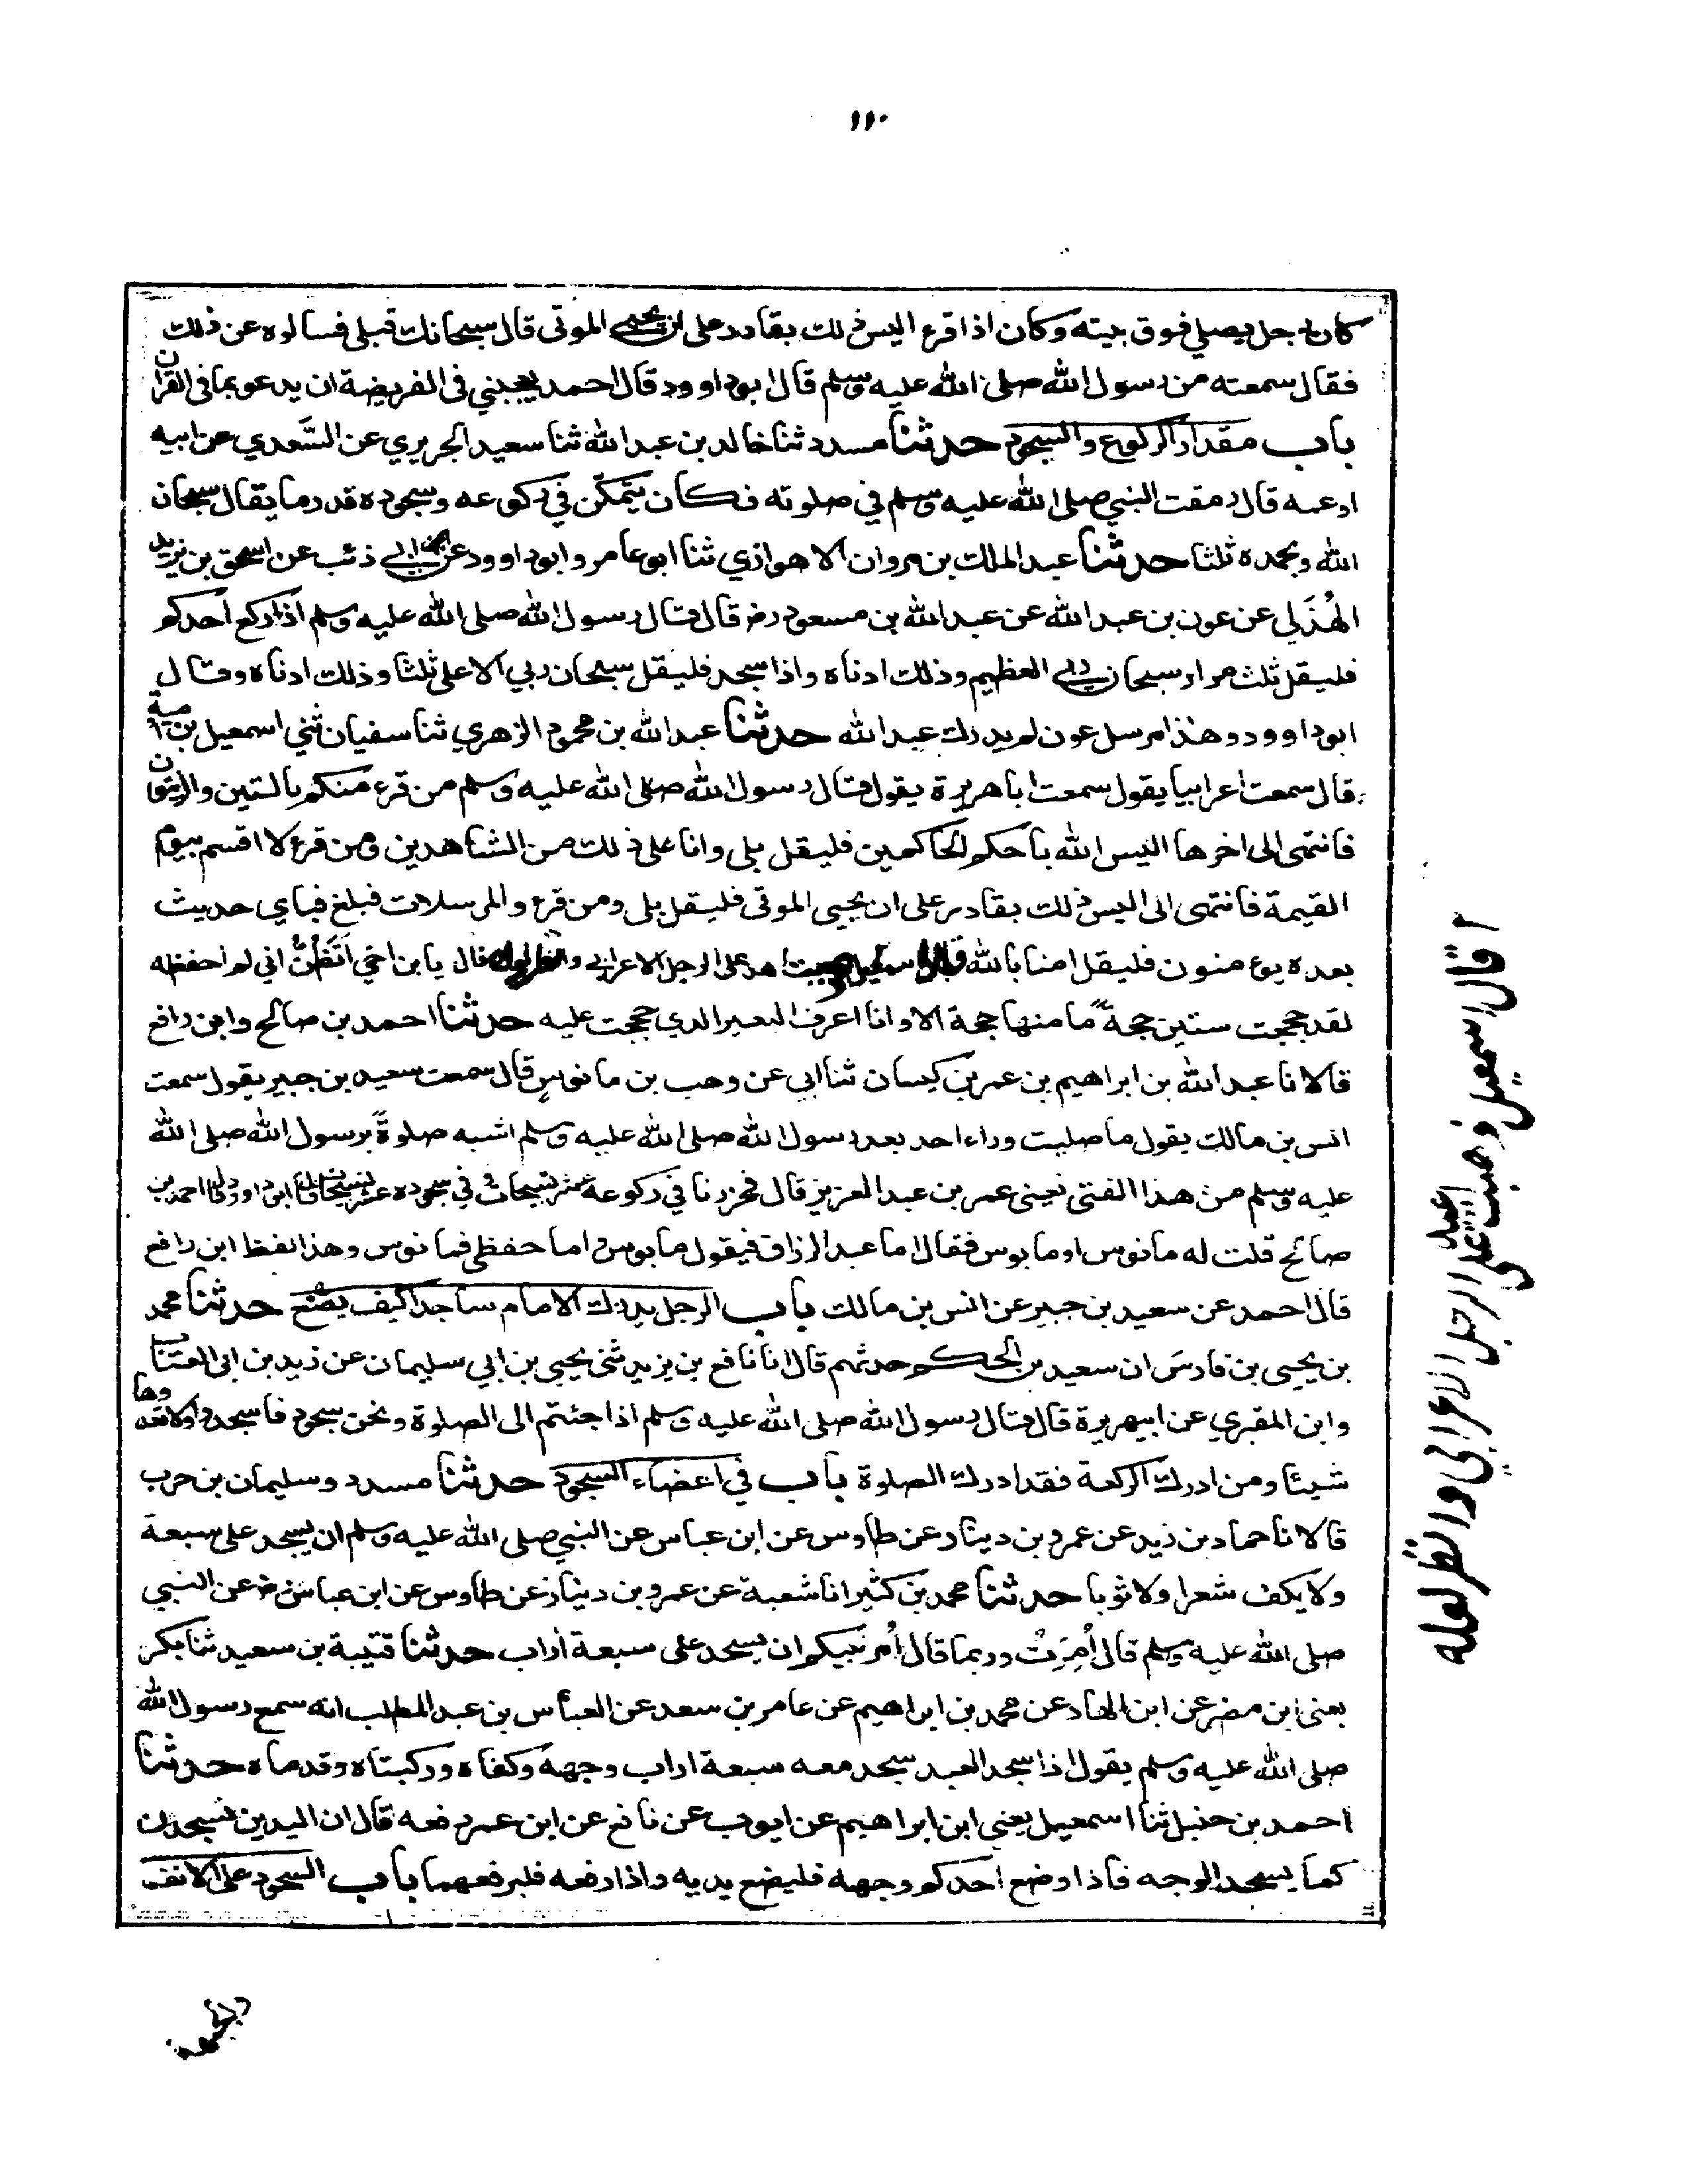 ١١٠
كان رجل يصلي فوق بيته وكان اذا قرء اليس ذلك بقادر على ان يحيى الموتى قال سبحانك فبلى فسالوه عن ذلك
فقال سمعته من رسول الله صلى الله عليه وسلم قال ابو داوود قال احمد يعجبني في الفريضة ان يدعو بما في القران
باب مقدار الركوع والسجود حدثنا مسدد ثنا خالد بن عبد الله ثنا سعيد الجريري عن السَّعدي عن ابيه
او عمه قال رمقت النبي صلى الله عليه وسلم في صلوته فكان يتمكّن في ركوعه وسجوده قدر ما يقال سبحان
الله وبحمده ثلثا حدثنا عبد الملك بن مروان الاهوازي ثنا ابو عامر وابو داوود عن ابن ابي ذئب عن اسحق بن يزيد
الهُذَلي عن عون بن عبد الله عن عبد الله بن مسعود رض قال قال رسول الله صلى الله عليه وسلم اذا ركع احدكم
فليقل ثلث مرار سبحان ربي العظيم وذلك ادناه واذا سجد فليقل سبحان ربي الاعلى ثلثا وذلك ادناه وقال
ابو داوود وهذا مرسل عون لم يدرك عبد الله حدثنا عبد الله بن محمود الزهري ثنا سفيان ثني اسمعيل بن امية
قال سمعت اعرابيا يقول سمعت ابا هريرة يقول قال رسول الله صلى الله عليه وسلم من قرء منكم بالتين والزيتون
فانتهى الى اخرها اليس الله باحكم الحاكمين فليقل بلى وانا على ذلك من الشاهدين ومن قرء لا اقسم بيوم
القيمة فانتهى الى اليس ذلك بقادر على ان يحيى الموتى فليقل بلى ومن قرء والمرسلات فبلغ فباي حديث
بعده يومنون فليقل امنا بالله قال اسمعيل ذهبت اعد على الرجل الاعرابي وانظر لعله قال يا بن اخي اَتَظُنُّ اني لم احفظه
لقد حججت ستين حجةً ما منها حجة الا وانا اعرف البعير الذي حججت عليه حدثنا احمد بن صالح وابن رافع
قالا نا عبد الله بن ابراهيم بن عمر بن كيسان ثنا ابي عن وهب بن مانوس قال سمعت سعيد بن جبير يقول سمعت
انس بن مالك يقول ما صليت وراء احد بعد رسول الله صلى الله عليه وسلم اشبه صلوةً برسول الله صلى الله
عليه وسلم من هذا الفتى يعني عمر بن عبد العزيز قال فحزرنا في ركوعه عشر تسبيحات وفي سجوده عشر تسبيحات قال ابو داوود قال احمد بن
صالح قلت له مانوس او مابوس فقال اما عبد الرزاق فيقول مابوس واما حفظي فمانوس وهذا لفظ ابن رافع
قال احمد عن سعيد بن جبير عن انس بن مالك باب الرجل يدرك الامام ساجدا كيف يصنع حدثنا محمد
بن يحيى بن فارس ان سعيد بن الحكم حدثهم قال انا نافع بن يزيد ثني يحيى بن ابي سليمان عن زيد بن ابي العتاب
وابن المقبري عن ابيهريرة قال قال رسول الله صلى الله عليه وسلم اذا جئتم الى الصلوة ونحن سجود فاسجدوا ولا تعدوها
شيئا ومن ادرك الركعة فقد ادرك الصلوة باب في اعضاء السجود حدثنا مسدد وسليمان بن حرب
قالا نا حماد بن زيد عن عمرو بن دينار عن طاوس عن ابن عباس عن النبي صلى الله عليه وسلم ان يسجد على سبعة
ولا يكف شعرا ولا ثوبا حدثنا محمد بن كثير انا شعبة عن عمرو بن دينار عن طاوس عن ابن عباس رض عن النبي
صلى الله عليه وسلم قال اُمِرْتُ وربما قال اُمر نبيكم ان يسجد على سبعة اراب حدثنا قتيبة بن سعيد ثنا بكر
يعني ابن مضر عن ابن الهاد عن محمد بن ابراهيم عن عامر بن سعد عن العباس بن عبد المطلب انه سمع رسول الله
صلى الله عليه وسلم يقول اذا سجد العبد سجد معه سبعة اراب وجهه وكفاه وركبتاه وقدماه حدثنا
احمد بن حنبل ثنا اسمعيل يعني ابن ابراهيم عن ايوب عن نافع عن ابن عمر رفعه قال ان اليدين تسجدان
كما يسجد الوجه فاذا وضع احدكم وجهه فليضع يديه واذا رفعه فليرفعهما باب السجود على الانف
قال اسمعيل ذهبت اعيد على الرجل الاعرابي وانظر لعله